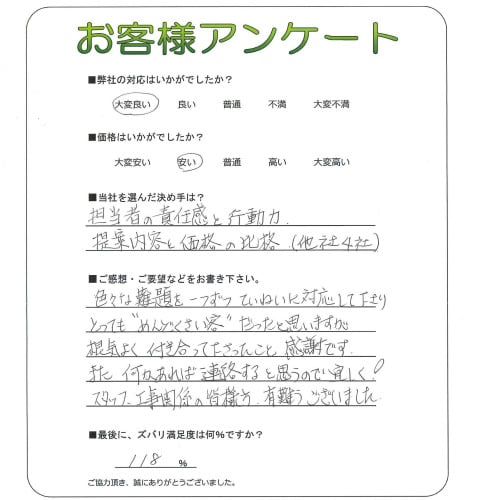 お客様アンケート
■弊社の対応はいかがでしたか？
大変良い 良い 普通 不満 大変不満
■価格はいかがでしたか？
大変安い 安い 普通 高い 大変高い
■当社を選んだ決め手は？
担当者の責任感と行動力.
提案内容と価格の比格 (他社4社)
■ご感想・ご要望などをお書き下さい。
色々な難題を一つずつていねいに対応して下さり
とっても"めんどくさい客"だったと思いますが
根気よく付き合って下さったこと 感謝です.
また 何かあれば連絡すると思うので宜しく!
スタッフ、工事関係の皆様方、有難うございました.
■最後に、ズバリ満足度は何%ですか？
118 %
ご協力頂き、誠にありがとうございました。